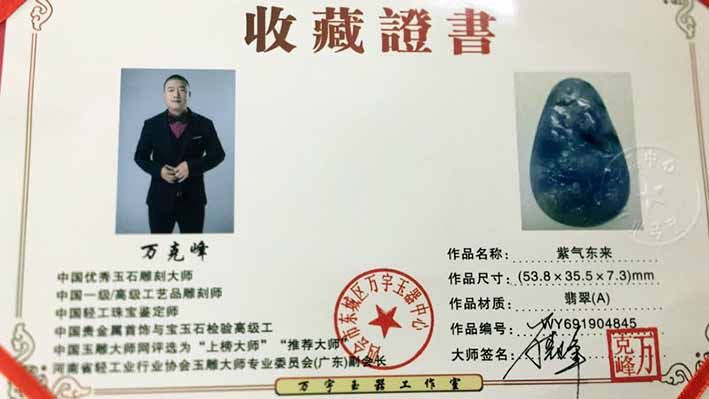 收藏證書
万克峰
中国优秀玉石雕刻大师
中国一级/高级工艺品雕刻师
中国轻工珠宝鉴定师
中国贵金属首饰与宝玉石检验高级工
中国玉雕大师网评选为“上榜大师”“推荐大师”
河南省轻工业行业协会玉雕大师专业委员会(广东)副会长
四会市东城区万字玉器中心
作品名称: 紫气东来
作品尺寸: (53.8×35.5×7.3)mm
作品材质: 翡翠(A)
作品编号: WY691904845
大师签名:
万克峰
万字玉器工作室